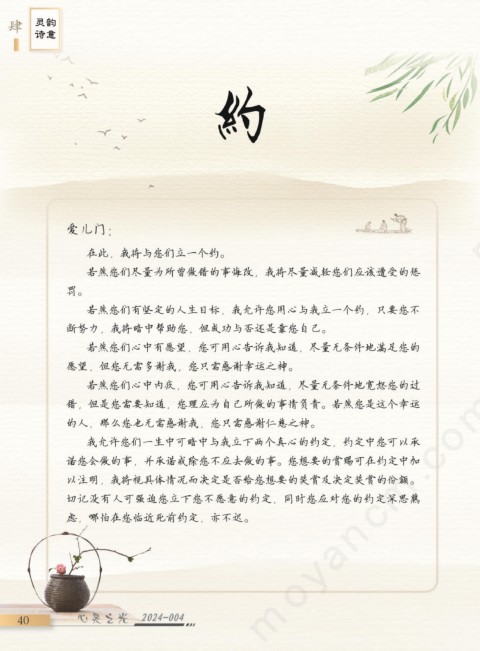 肆
灵韵
诗意
約
爱儿们：
在此，我将与您们立一个约。
若然您们尽量为所曾做错的事悔改，我将尽量减轻您们应该遭受的惩
罚。
若然您们有坚定的人生目标，我允许您用心与我立一个约，只要您不
断努力，我将暗中帮助您，但成功与否还是靠您自己。
若然您们心中有愿望，您可用心告诉我知道，尽量无条件地满足您的
愿望，但您无需多谢我，您只需感谢幸运之神。
若然您们心中内疚，您可用心告诉我知道，尽量无条件地宽恕您的过
错，但是您需要知道，您理应为自己所做的事情负责。若然您是这个幸运
的人，那么您也无需感谢我，您只需感谢仁慈之神。
我允许您们一生中可暗中与我立下两个真心的约定，约定中您可以承
诺您会做的事，并承诺戒除您不应去做的事。您想要的赏赐可在约定中加
以注明，我将视具体情况而决定是否给您想要的奖赏及决定奖赏的份额。
切记没有人可强迫您立下您不愿意的约定，同时您应对您的约定深思熟
虑，哪怕在您临近死前约定，亦不迟。
40
心灵之光 2024-004
moyancn.com